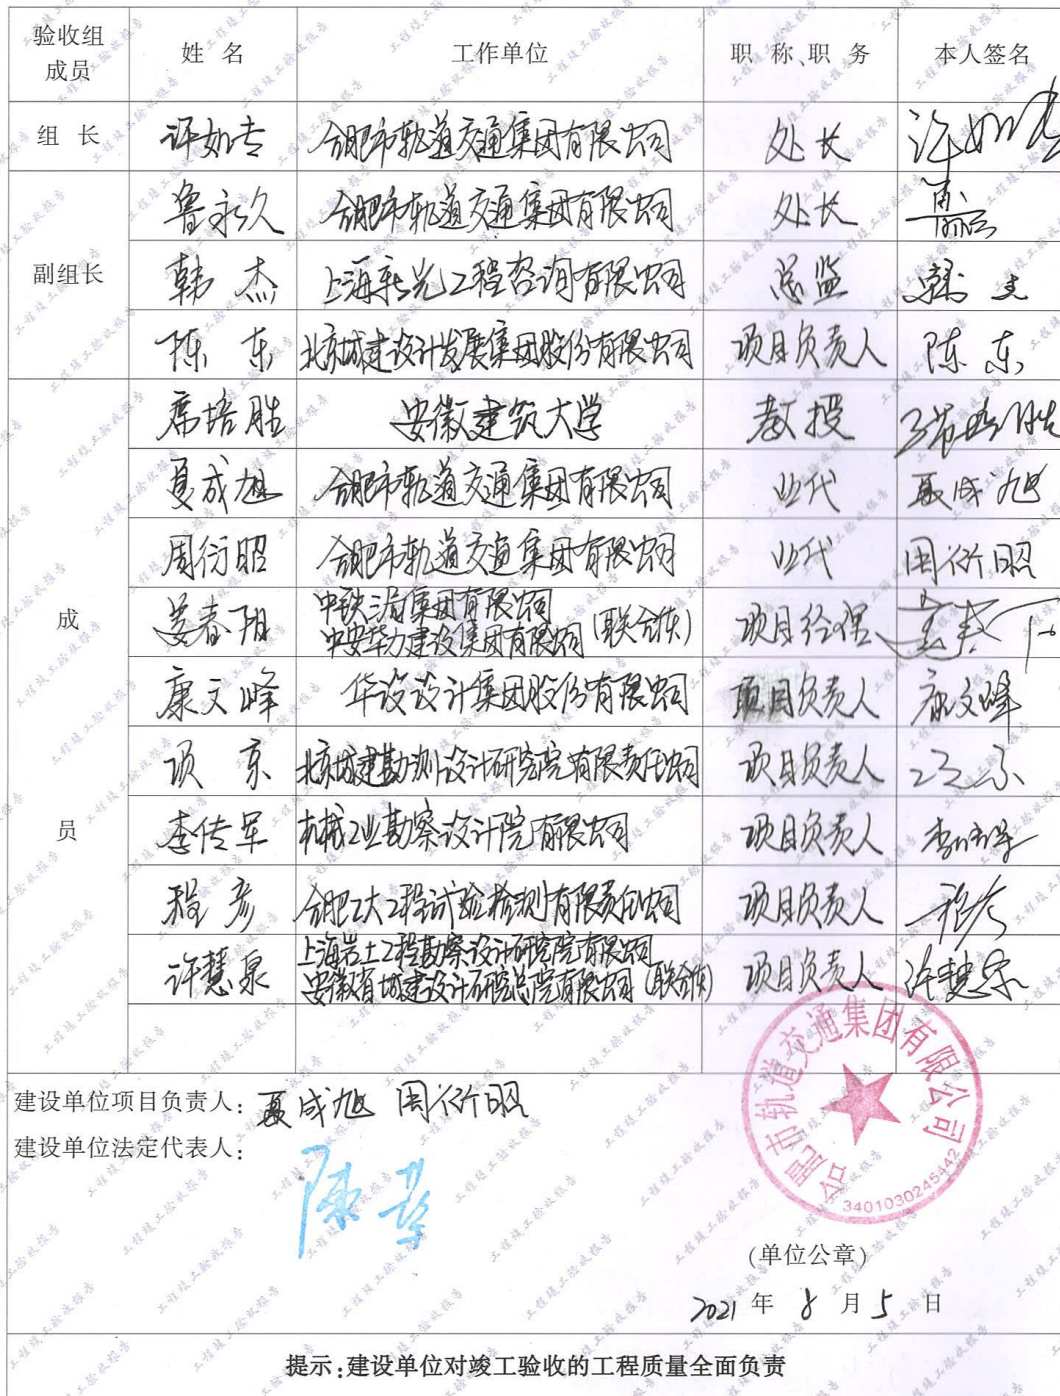 验收组成员 姓 名 工作单位 职 称、职 务 本人签名
组 长 许如专 合肥市轨道交通集团有限公司 处长 许如
副组长 鲁永久 合肥市轨道交通集团有限公司 处长
韩杰 上海新光工程咨询有限公司 总监 韩杰
陈东 北京城建设计发展集团股份有限公司 项目负责人 陈东
成员 席培胜 安徽建筑大学 教授 席培胜
夏成旭 合肥市轨道交通集团有限公司 业代 夏成旭
周衍昭 合肥市轨道交通集团有限公司 业代 周衍昭
姜春阳 中铁三局集团有限公司
中安华力建设集团有限公司(联合体) 项目经理
康文峰 华设设计集团股份有限公司 项目负责人 康文峰
项东 北京城建勘测设计研究院有限责任公司 项目负责人 项东
李传军 机械工业勘察设计院有限公司 项目负责人 李传军
程彦 合肥工大工程试验检测有限责任公司 项目负责人 程彦
许慧泉 上海岩土工程勘察设计研究院有限公司
安徽省城建设计研究总院有限公司(联合体) 项目负责人 许慧泉
建设单位项目负责人: 夏成旭 周衍昭
建设单位法定代表人:
合肥市轨道交通集团有限公司
3401030245442
(单位公章)
2021 年 8 月 5 日
提示:建设单位对竣工验收的工程质量全面负责
工程竣工验收报告